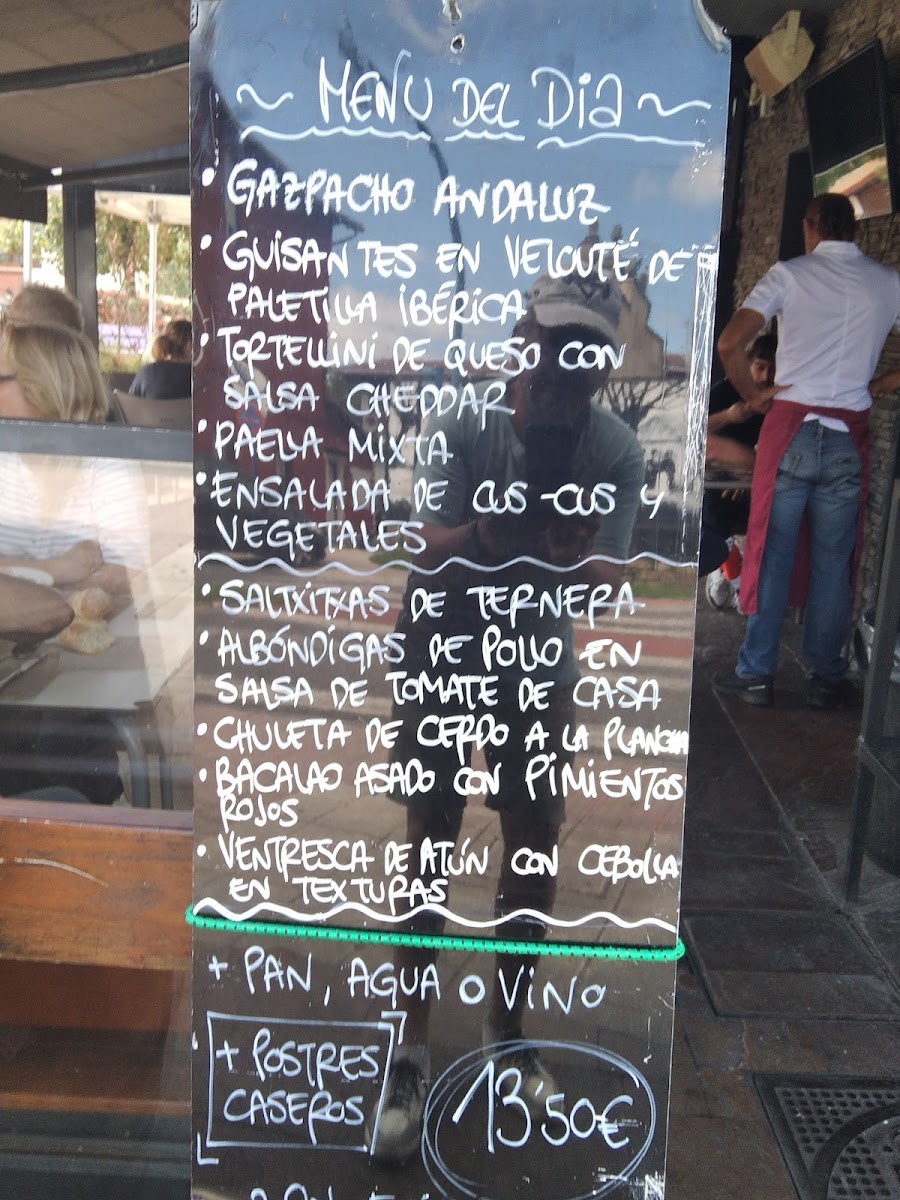 ~ MENU DEL DIA ~
• GAZPACHO ANDALUZ
• GUISANTES EN VELOUTÉ DE
PALETILLA IBÉRICA
• TORTELLINI DE QUESO CON
SALSA CHEDDAR
• PAELLA MIXTA
• ENSALADA DE CUS-CUS Y
VEGETALES
• SALTXITXAS DE TERNERA
• ALBÓNDIGAS DE POLLO EN
SALSA DE TOMATE DE CASA
• CHULETA DE CERDO A LA PLANCHA
• BACALAO ASADO CON PIMIENTOS
ROJOS
• VENTRESCA DE ATÚN CON CEBOLLA
EN TEXTURAS
+ PAN, AGUA O VINO
+ POSTRES
CASEROS
13'50€